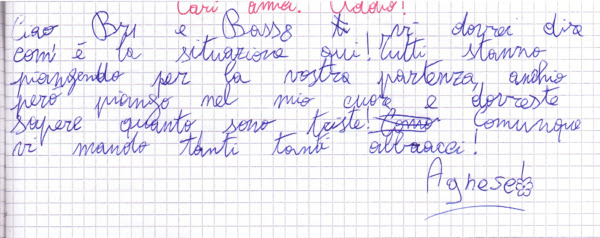 Cari amici. Addio!
Ciao Bru e Bass8 vi dovrei dire
com'è la situazione qui! Tutti stanno
piangendo per la vostra partenza, anch'io
però piango nel mio cuore e dovreste
sapere quanto sono triste! Comunque
vi mando tanti tanti abbracci!
Agnese